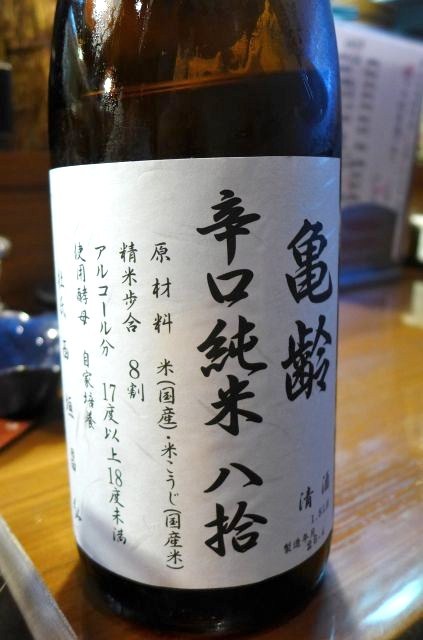 亀齢
辛口純米 八拾
清酒
製造年月
原材料 米(国産)・米こうじ(国産米)
精米歩合 8割
アルコール分 17度以上18度未満
使用酵母 自家培養
杜氏 西垣